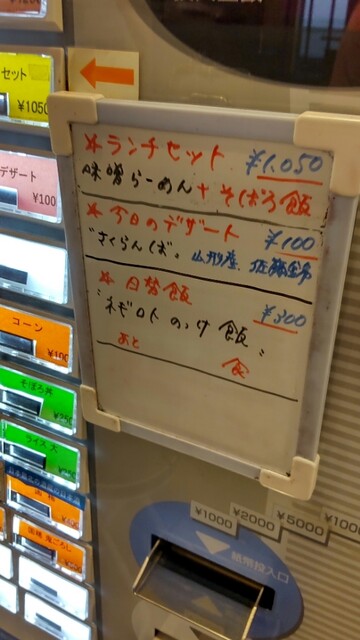 セット
¥1050
デザート
¥100
コーン
¥100
そぼろ丼
ライス大
*ランチセット ¥1,050
味噌らーめん+そぼろ飯
*今日のデザート ¥100
"さくらんぼ" 山形産、佐藤錦
*日替飯
¥300
"ネギトロのっけ飯"
あと 食
¥1000
¥2000
¥5000
紙幣投入口